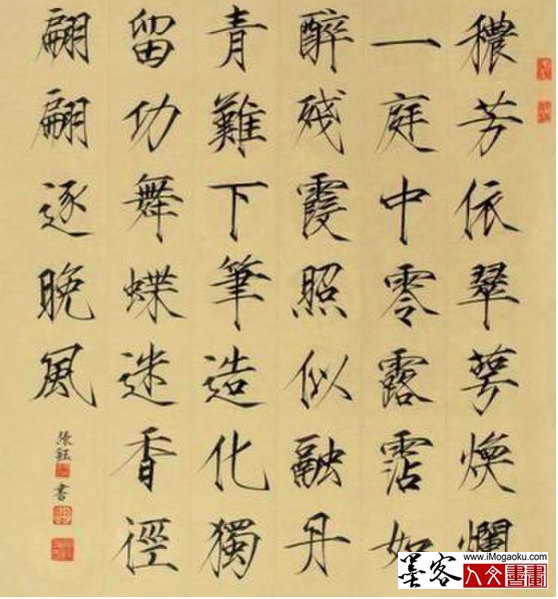 穠芳依翠萼煥爛
一庭中零露霑如
醉殘霞照似融丹
青難下筆造化獨
留功舞蝶迷香徑
翩翩逐晚風
張鈺書
墨客
www.iMogaoku.com
人文書畫